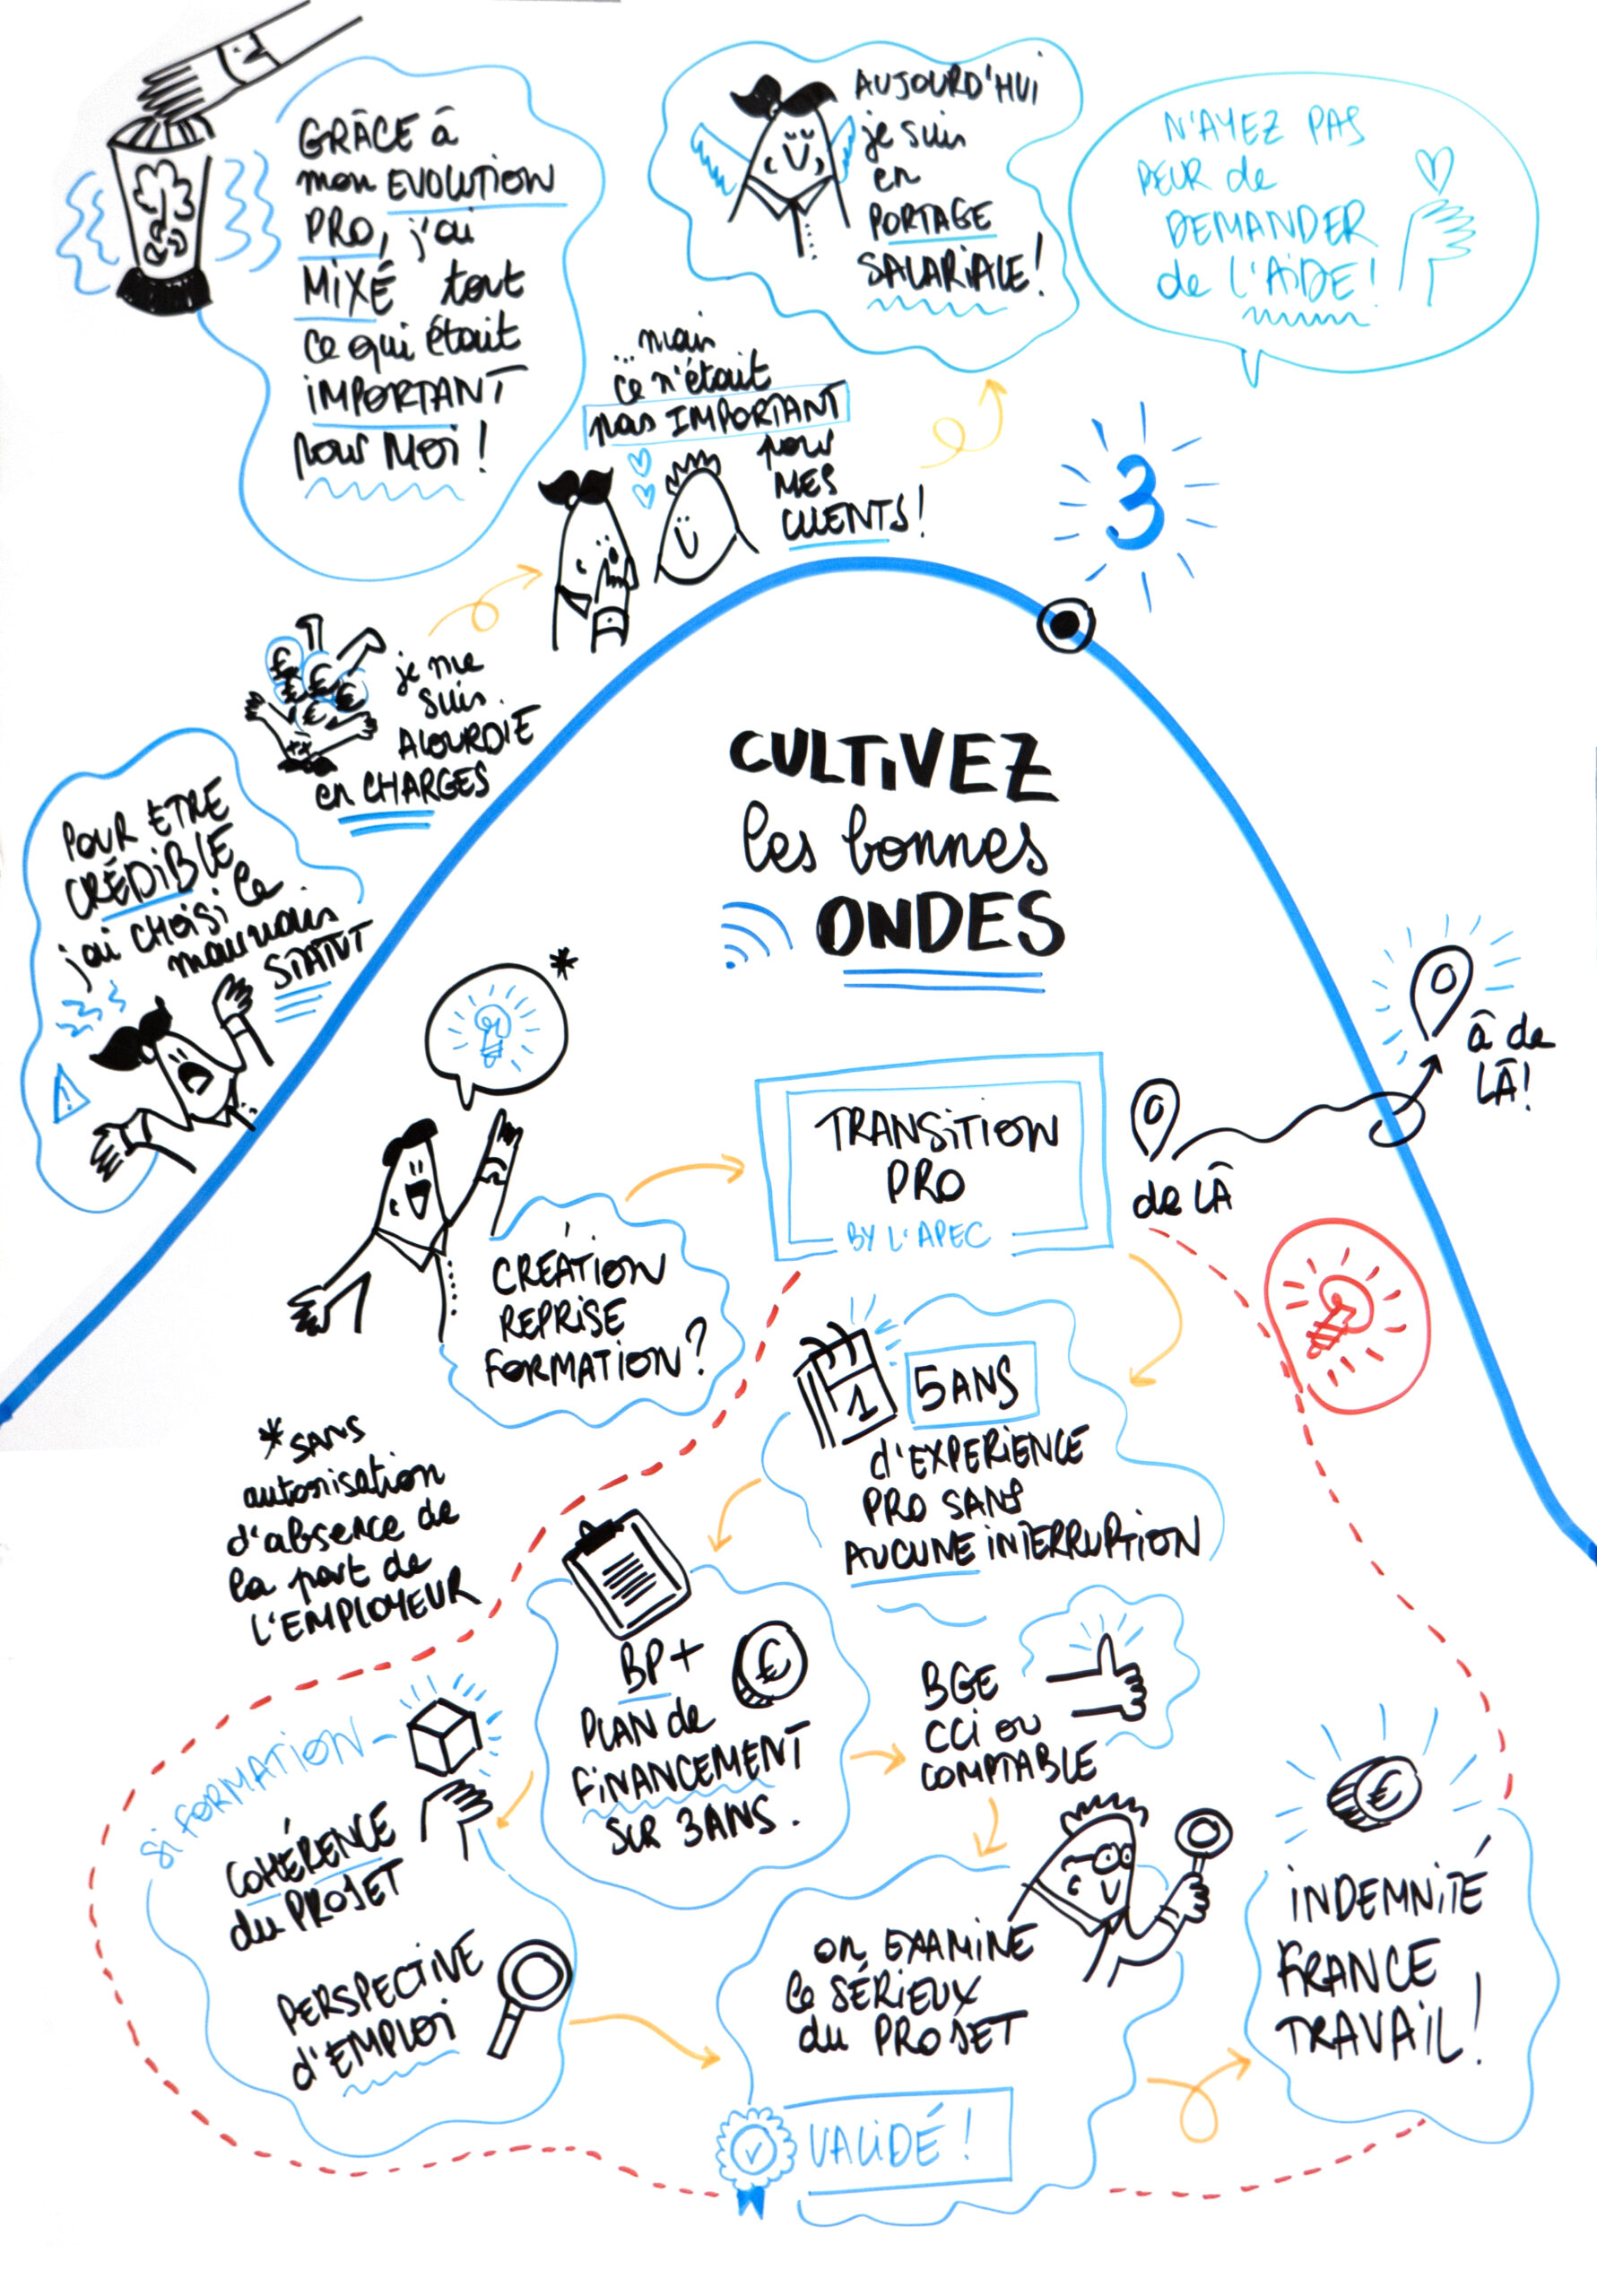 GRÂCE à
mon EVOLUTION
PRO, j'ai
MIXÉ tout
ce qui était
IMPORTANT
pour MOI !
AUJOURD'HUI
je suis
en
PORTAGE
SALARIALE !
N'AYEZ PAS
PEUR de
DEMANDER
de L'AIDE !
... mais
ce n'était
pas IMPORTANT
pour
MES
CLIENTS !
3
je me
suis
ALOURDIE
en CHARGES
POUR ETRE
CRÉDIBLE
j'ai CHOISI le
mauvais
STATUT
CULTIVEZ
les bonnes
ONDES
*
à de
LÀ !
de LÀ
TRANSITION
PRO
BY L'APEC
CRÉATION
REPRISE
FORMATION ?
1
5 ANS
d'EXPERIENCE
PRO SANS
AUCUNE INTERRUPTION
* SANS
autorisation
d'absence de
la part de
L'EMPLOYEUR
BP +
PLAN de
FINANCEMENT
SUR 3 ANS.
€
BGE
CCI ou
COMPTABLE
Si FORMATION -
COHÉRENCE
du PROJET
PERSPECTIVE
d'EMPLOI
on EXAMINE
le SÉRIEUX
du PROJET
VALIDÉ !
€
INDEMNITÉ
FRANCE
TRAVAIL !